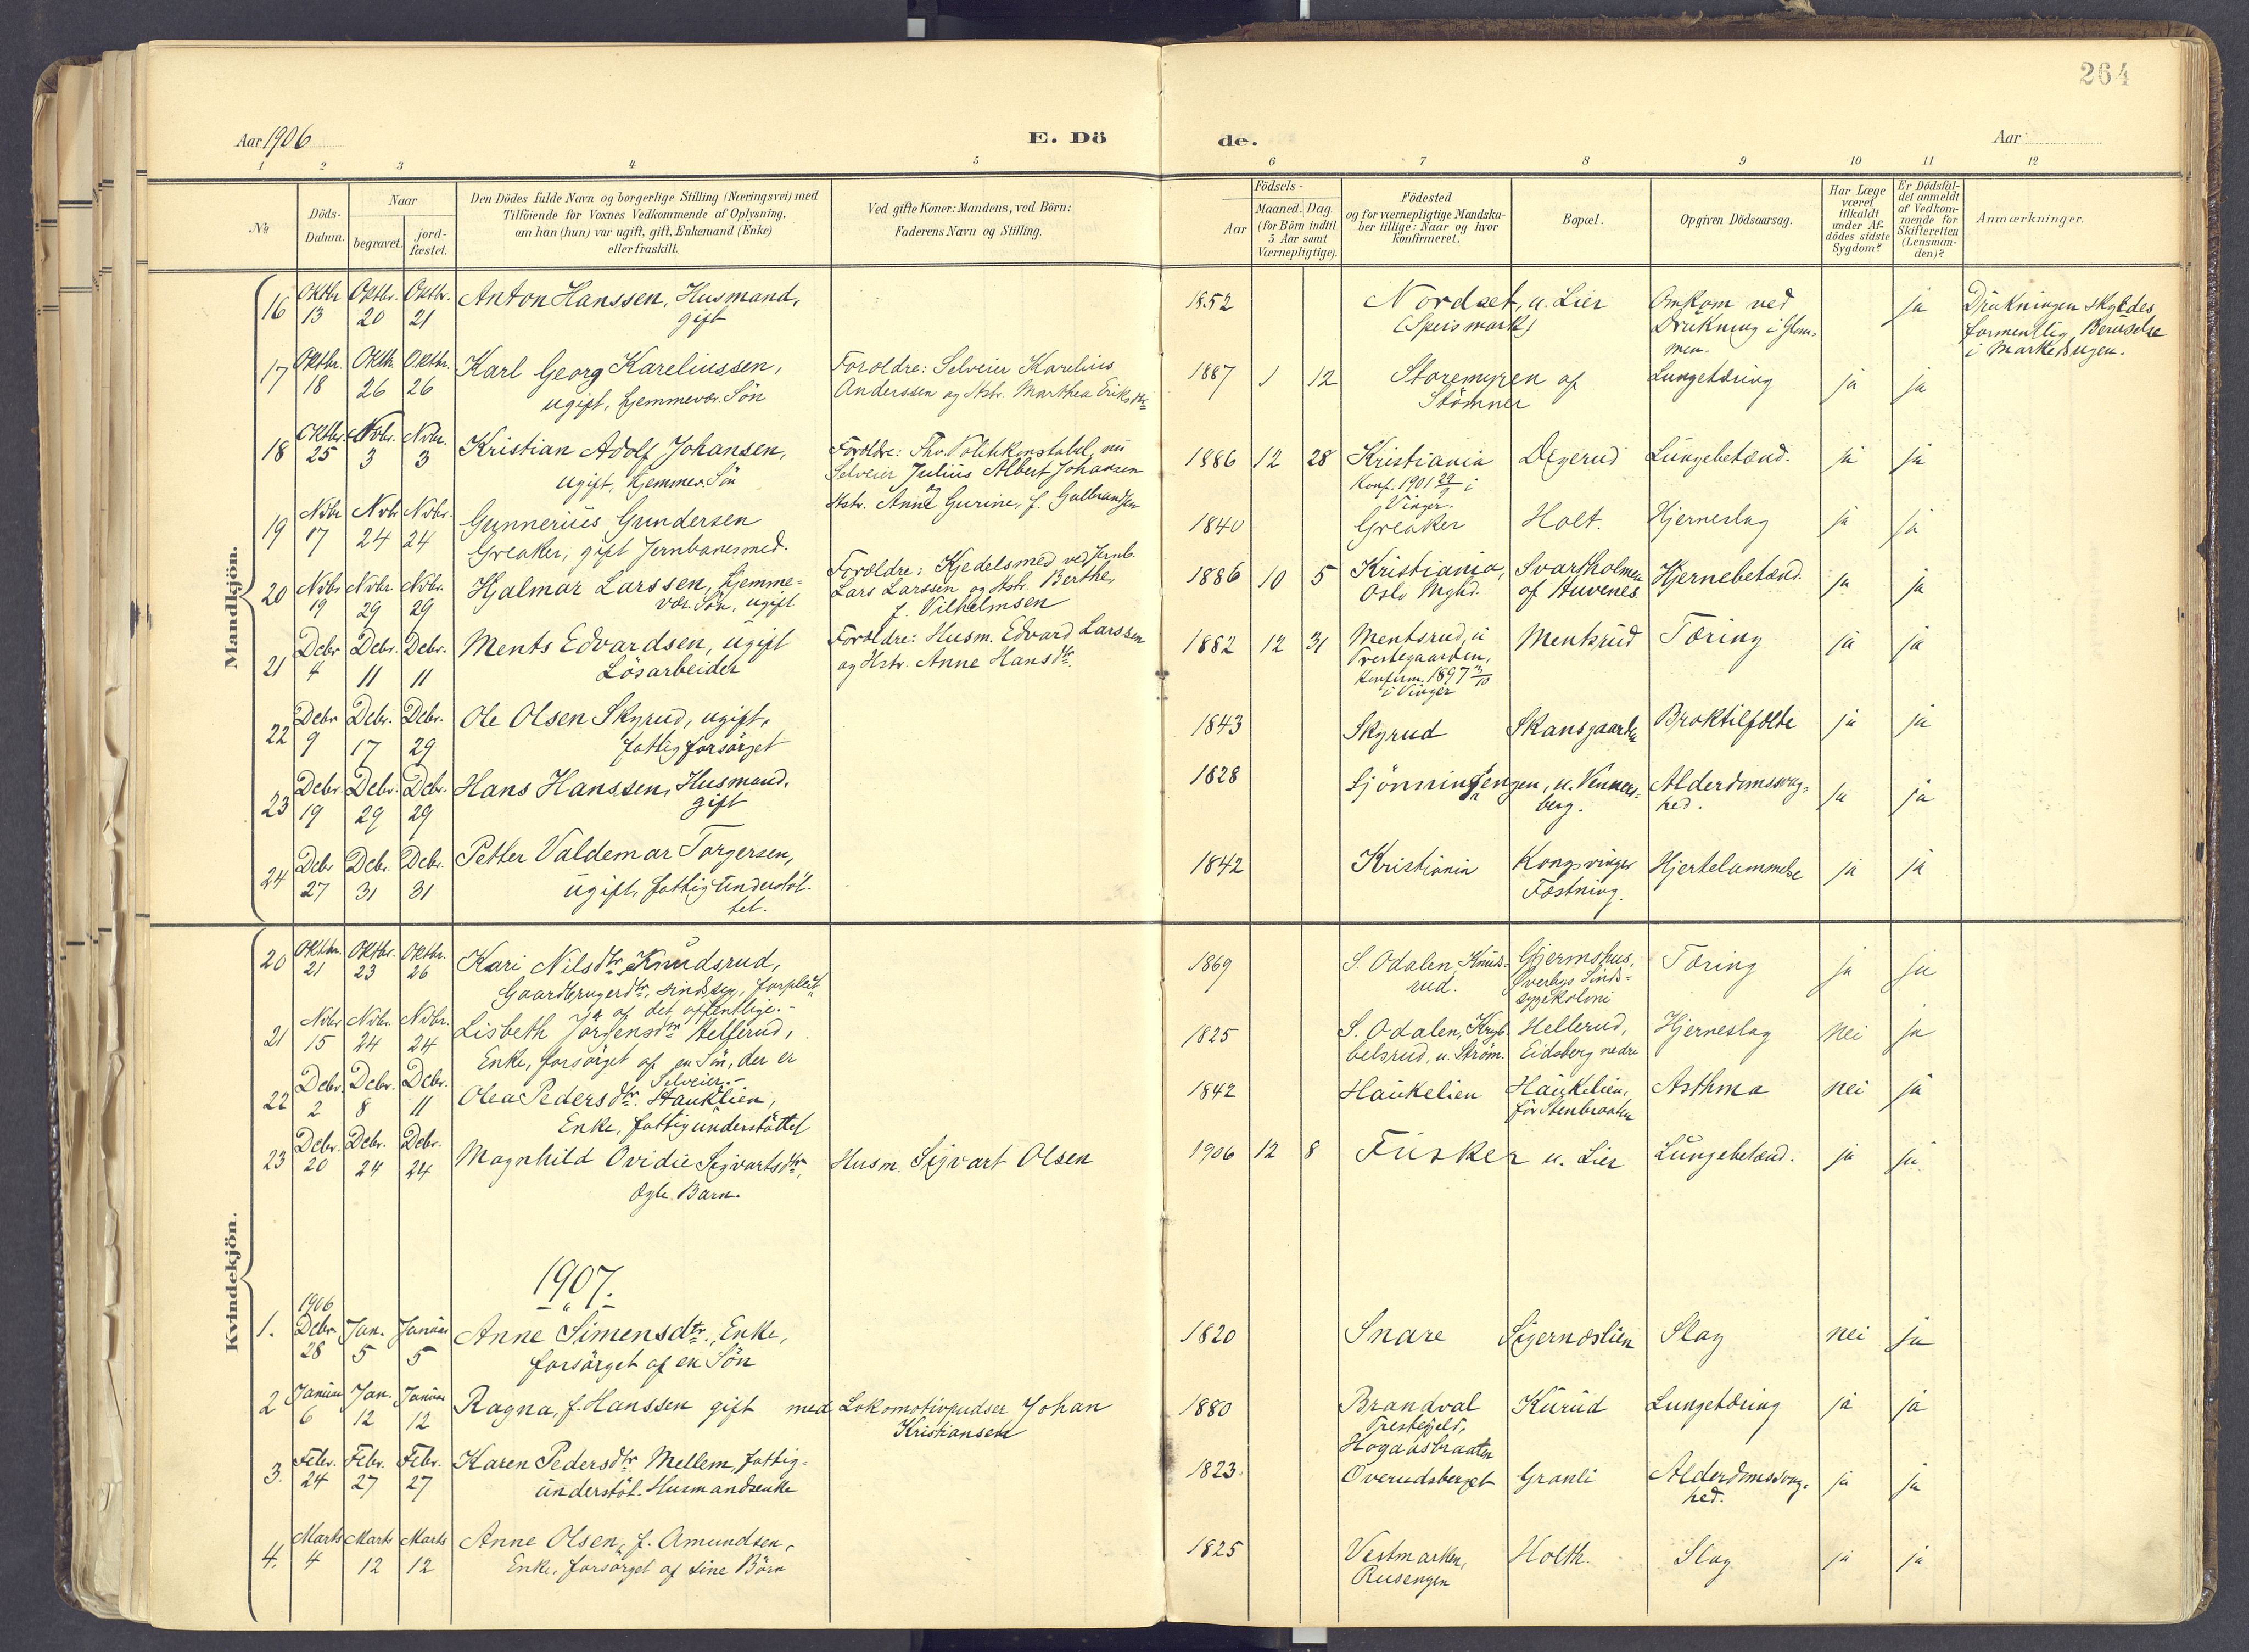 264
Aar 1906 E. Dö de. Aar
1 2 3 4 5 6 7 8 9 10 11 12
№ Döds-Datum. Naar begravet. jord-fæstet. Den Dödes fulde Navn og borgerlige Stilling (Næringsvei) med Tilföiende for Voxnes Vedkommende af Oplysning, om han (hun) var ugift, gift, Enkemand (Enke) eller fraskilt. Ved gifte Koner: Mandens, ved Börn: Faderens Navn og Stilling. Födsels- Aar Maaned. Dag. (for Börn indtil 5 Aar samt Værnepligtige). Födested og for værnepligtige Mandskaber tillige: Naar og hvor konfirmeret. Bopæl. Opgiven Dödsaarsag. Har Læge været tilkaldt under Afdödes sidste Sygdom? Er Dödsfaldet anmeldt af Vedkommende for Skifteretten (Lensmanden)? Anmærkninger.
Mandkjön.
16 Oktbr. 13 Oktbr. 20 Oktbr. 21 Anton Hanssen, Husmand, gift 1852 Nordset, u. Lier Omkom ved Drukning i Glommen. ja Drukningen skyldes formentlig Beruselse i Markedsugen.
17 Oktbr. 18 Oktbr. 26 Oktbr. 26 Karl Georg Kareliussen, ugift, hjemmevær. Sön Foroldre: Selveier Karelius Anderssen og Hstr. Marthea Eriksdtr. 1887 1 12 Storemyren af Stömner Lungetæring ja ja
18 Oktbr. 25 Nvbr. 3 Nvbr. 3 Kristian Adolf Johansen, ugift, hjemmev. Sön Foroldre: Fhv. Politikonstabel, nu Selveier Julius Albert Johansen og Hstr. Anne Gurine, f. Gulbrandsen 1886 12 28 Kristiania Konf. 1901 29/9 i Vinger. Digerud Lungebetænd. ja ja
19 Nvbr. 17 Nvbr. 24 Nvbr. 24 Gunnerius Gundersen Greaker, gift Jernbanesmed. 1840 Greaker Holt. Hjerneslag ja ja
20 Nvbr. 19 Nvbr. 29 Nvbr. 29 Hjalmar Larssen, hjemmevær. Sön, ugift Forældre: Kjedelsmed ved Jernb. Lars Larssen og Hstr. Berthe, f. Vilhelmsen 1886 10 5 Kristiania, Oslo Mghd. Svartholmen af Huvenes. Hjernebetænd. ja ja
21 Debr. 4 Debr. 11 Debr. 11 Ments Edvardsen, ugift Lösarbeider Foroldre: Husm. Edvard Larssen og Hstr. Anne Hansdtr. 1882 12 31 Mentsrud, u Prestegaarden, Konfirm. 1897 3/10 i Vinger Mentsrud Tæring ja ja
22 Debr. 9 Debr. 17 Debr. 29 Ole Olsen Skyrud, ugift, fattigforsörget 1843 Skyrud Skansgaarden Broktilfælde ja ja
23 Debr. 19 Debr. 29 Debr. 29 Hans Hanssen, Husmand, gift 1828 u. Vennersberg. Alderdomssvaghed. ja ja
24 Debr. 27 Debr. 31 Debr. 31 Petter Valdemar Torgersen, ugift, fattigunderstöttet. 1842 Kristiania Kongsvinger Fæstning. Hjertelammelse ja ja
Kvindekjön.
20 Oktbr. 21 Oktbr. 23 Oktbr. 26 Kari Nilsdtr. Knudsrud, Gaardbrugerdtr., sindssyg, forpleiet af det offentlige.- 1869 S. Odalen, Knudsrud. Gjermshus, Överbys Sindssygekoloni Tæring ja ja
21 Nvbr. 15 Nvbr. 24 Nvbr. 24 Lisbeth Jörgensdtr. Hellerud, Enke, forsörget af en Sön, der er Selveier.- 1825 S. Odalen, u. Ström. Hellerud, Eidsberg nedre Hjerneslag nei ja
22 Debr. 2 Debr. 8 Debr. 11 Olea Pedersdtr. Hauklien, Enke, fattigunderstöttet 1842 Haukelien Haukelien, för Stenbraaten Asthma nei ja
23 Debr. 20 Debr. 24 Debr. 24 Magnhild Ovidie Sigvartsdtr., ægte Barn. Husm. Sigvart Olsen 1906 12 8 Fusker u. Lier Lungebetænd. ja ja
1907.
1. 1906 Debr. 28 Jan. 5 Januar 5 Anne Simensdtr., Enke, forsörget af en Sön 1820 Snare Sigernæslien Slag nei ja
2 Januar 6 Jan. 12 Januar 12 Ragna, f. Hanssen gift med Lokomotivpudser Johan Kristiansen 1880 Brandval Prestegjeld, Hogaasbraaten Kurud Lungetæring ja ja
3. Febr. 24 Febr. 27 Febr. 27 Karen Pedersdtr. Mellem, fattigunderstöt. Husmandsenke 1823. Overudsberget Granli Alderdomssvaghed. ja ja
4. Marts 4 Marts 12 Marts 12 Anne Olsen, f. Amundsen, Enke, forsörget af sine Börn 1825 Vestmarken, Rusengen Holth. Slag ja ja